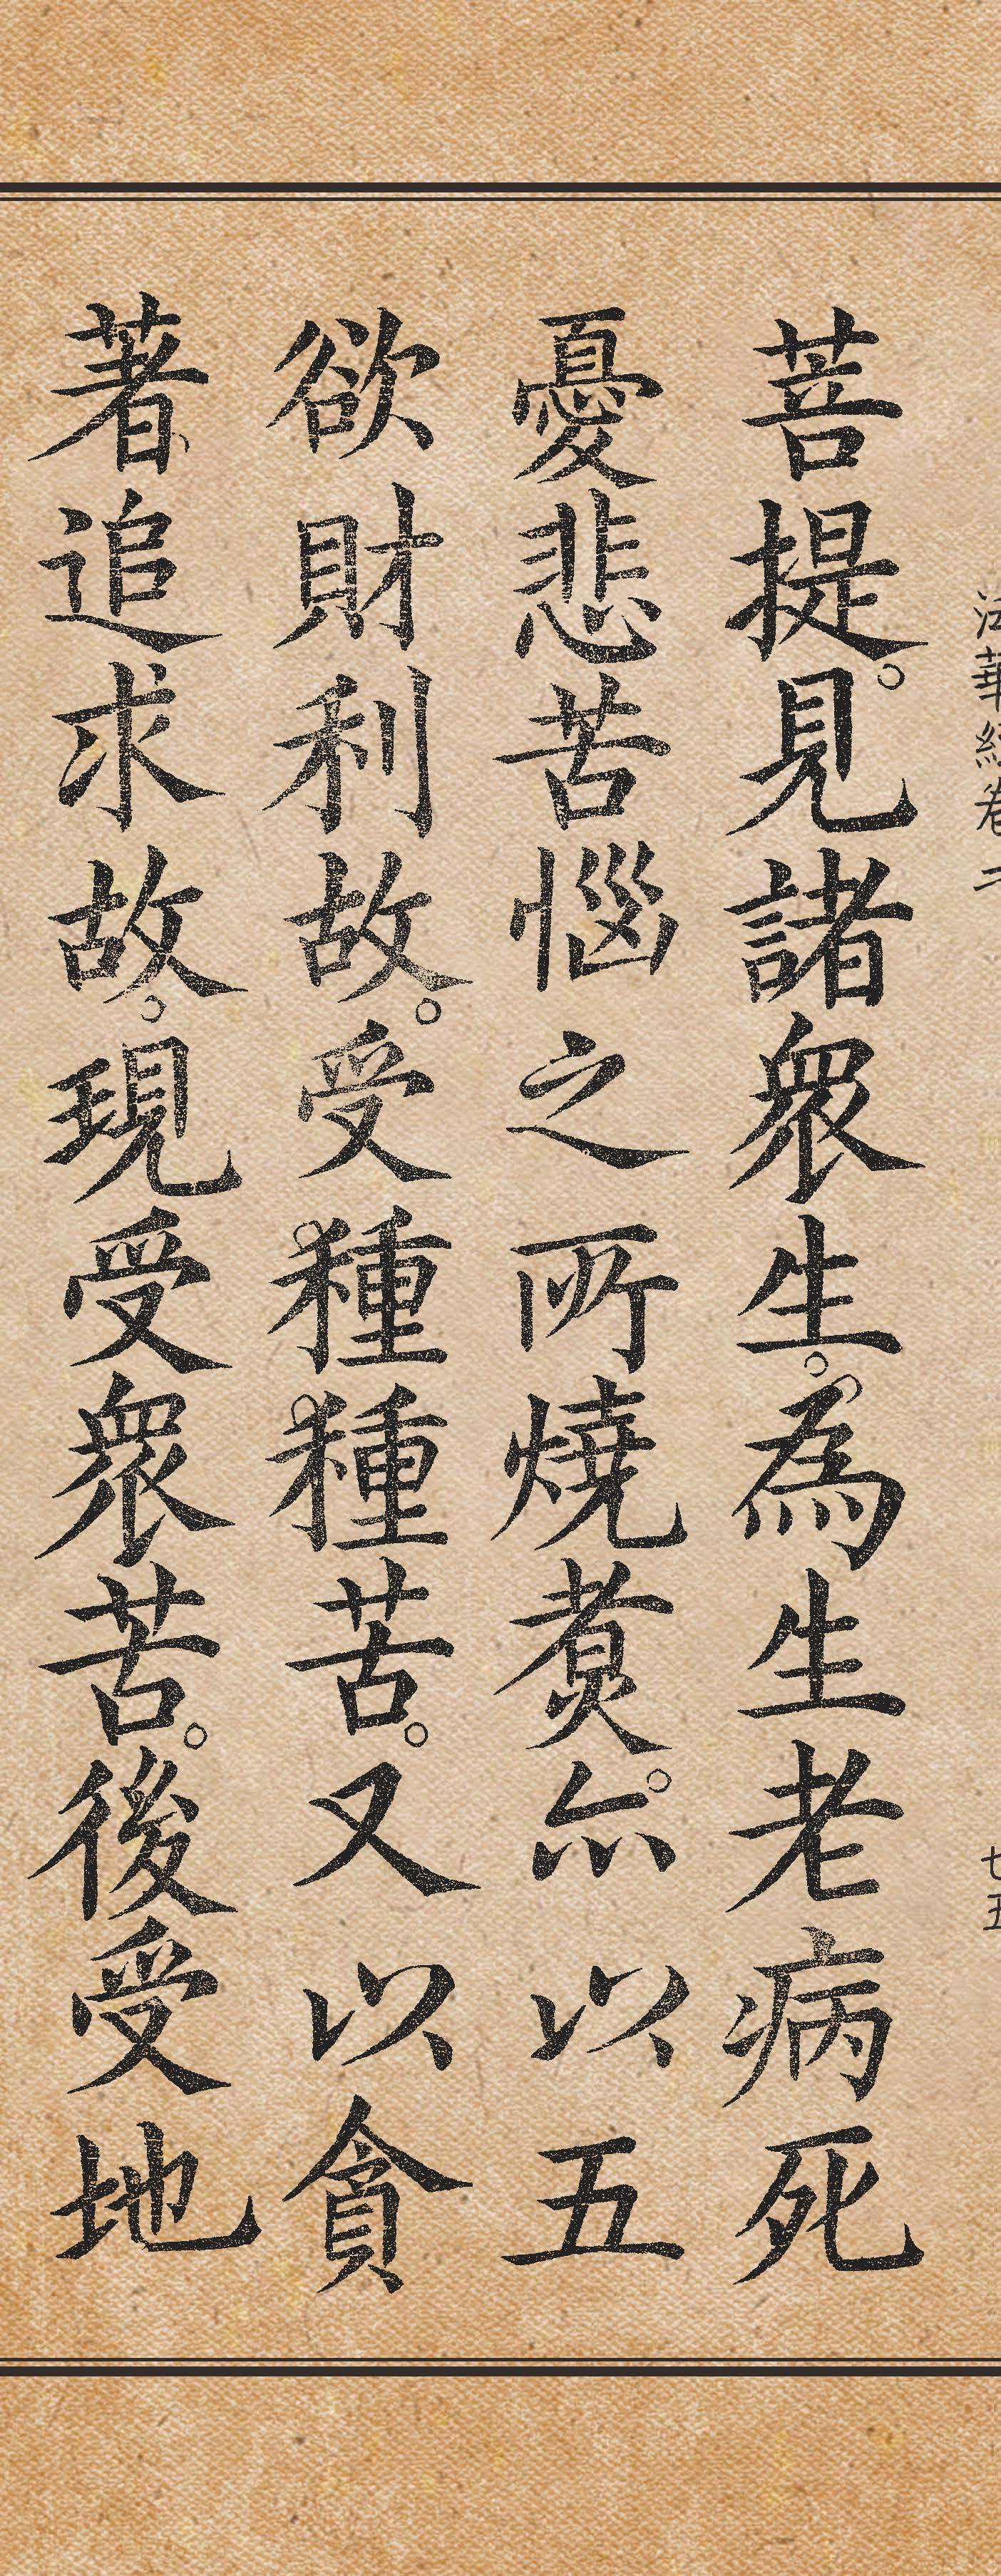 法華經卷二
七五
菩提。見諸衆生。為生老病死
憂悲苦惱之所燒煑。亦以五
欲財利故。受種種苦。又以貪
著追求故。現受衆苦。後受地